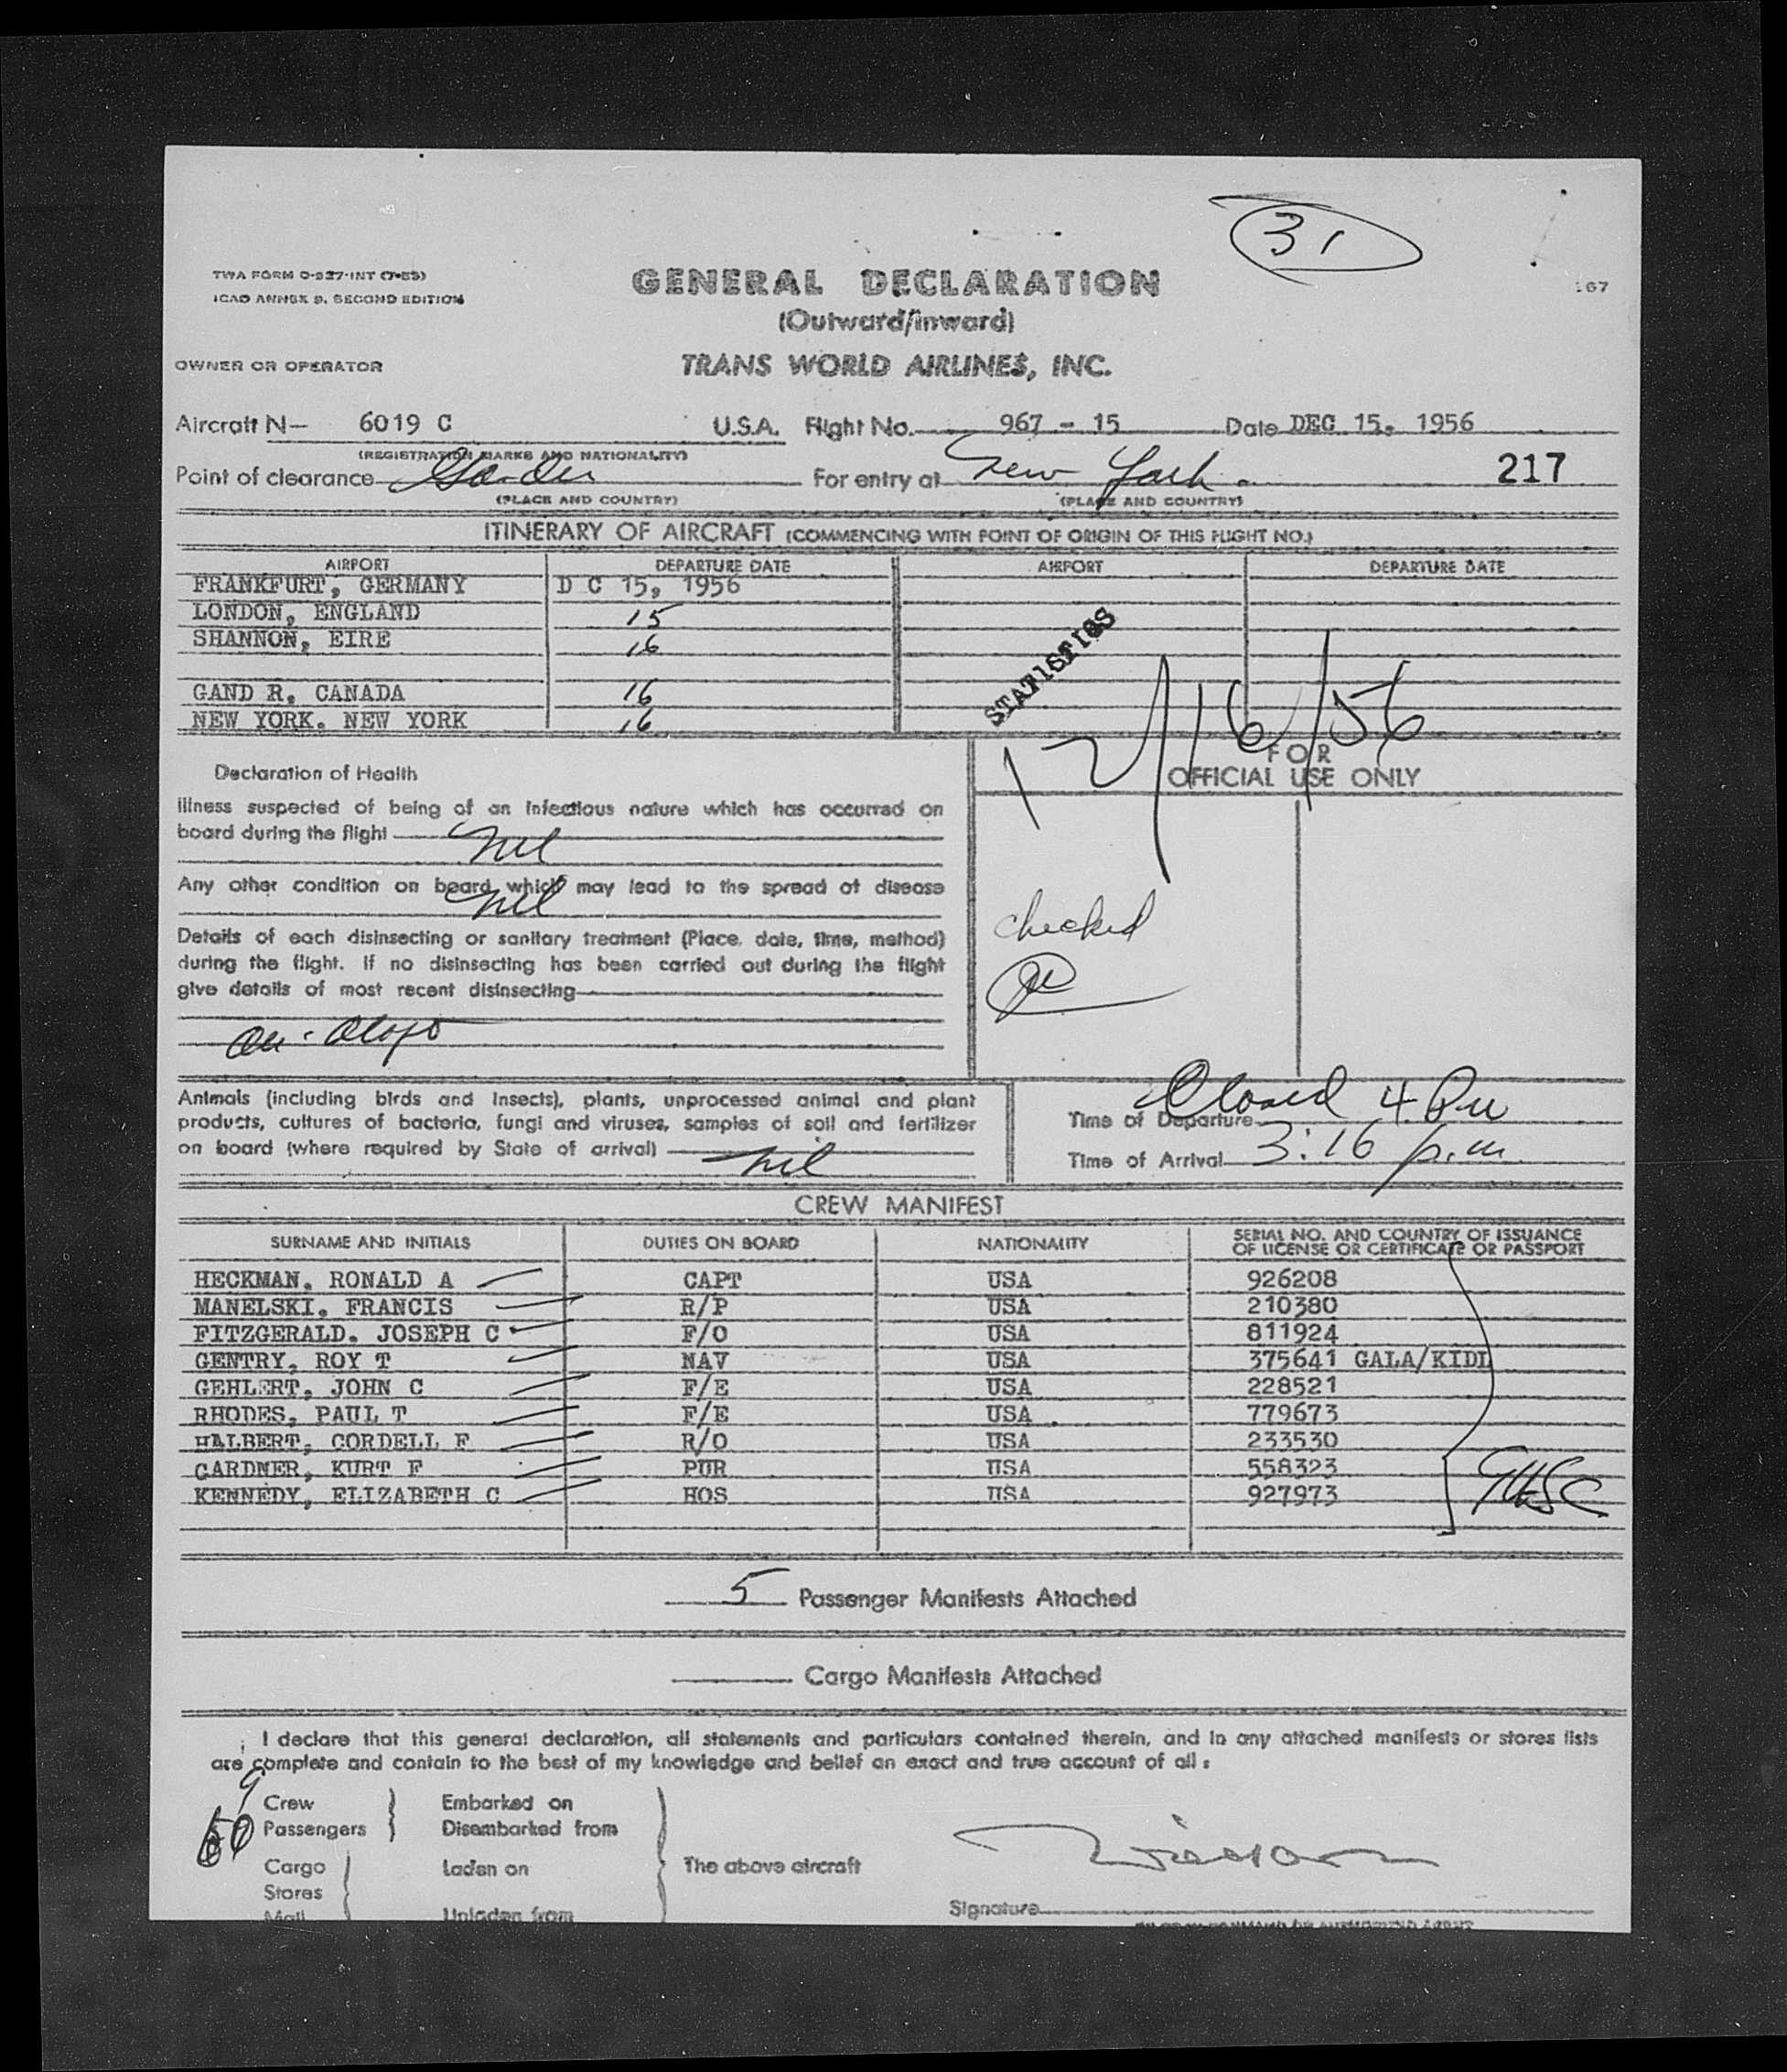 31
TWA FORM O-927-INT (7-55)
ICAO ANNEX 9, SECOND EDITION
GENERAL DECLARATION
(Outward/inward)
67
OWNER OR OPERATOR
TRANS WORLD AIRLINES, INC.
Aircraft N- 6019 C U.S.A. Flight No. 967 - 15 Date DEC 15, 1956
(REGISTRATION MARKS AND NATIONALITY)
Point of clearance Gander For entry at New York. 217
(PLACE AND COUNTRY) (PLACE AND COUNTRY)
ITINERARY OF AIRCRAFT (COMMENCING WITH POINT OF ORIGIN OF THIS FLIGHT NO.)
AIRPORT DEPARTURE DATE AIRPORT DEPARTURE DATE
FRANKFURT, GERMANY D C 15, 1956
LONDON, ENGLAND 15
SHANNON, EIRE 16
GAND R, CANADA 16
NEW YORK. NEW YORK 16
STATISTICS
12/16/56
FOR
OFFICIAL USE ONLY
Declaration of Health
Illness suspected of being of an infectious nature which has occurred on
board during the flight nil
Any other condition on board which may lead to the spread of disease
nil
Details of each disinsecting or sanitary treatment (Place, date, time, method)
during the flight. If no disinsecting has been carried out during the flight
give details of most recent disinsecting
checked
Animals (including birds and insects), plants, unprocessed animal and plant
products, cultures of bacteria, fungi and viruses, samples of soil and fertilizer
on board (where required by State of arrival) nil
Closed 4 PM
Time of Departure
Time of Arrival 3:16 p.m.
CREW MANIFEST
SURNAME AND INITIALS DUTIES ON BOARD NATIONALITY SERIAL NO. AND COUNTRY OF ISSUANCE OF LICENSE OR CERTIFICATE OR PASSPORT
HECKMAN. RONALD A CAPT USA 926208
MANELSKI. FRANCIS R/P USA 210380
FITZGERALD. JOSEPH C F/O USA 811924
GENTRY, ROY T NAV USA 375641 GALA/KIDL
GEHLERT, JOHN C F/E USA 228521
RHODES, PAUL T F/E USA 779673
HALBERT, CORDELL F R/O USA 233530
GARDNER, KURT F PUR USA 558323
KENNEDY, ELIZABETH C HOS USA 927973
5 Passenger Manifests Attached
Cargo Manifests Attached
I declare that this general declaration, all statements and particulars contained therein, and in any attached manifests or stores lists
are complete and contain to the best of my knowledge and belief an exact and true account of all :
9 Crew Embarked on
Passengers Disembarked from
Cargo Laden on The above aircraft
Stores
Mail Unladen from
Signature